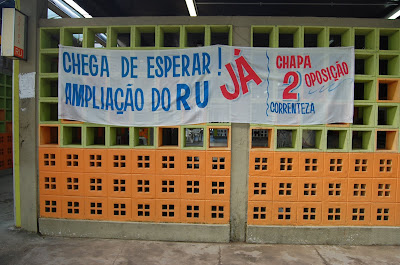 CHEGA DE ESPERAR!
AMPLIAÇÃO DO RU
JÁ
CHAPA
2 OPOSIÇÃO
CORRENTEZA